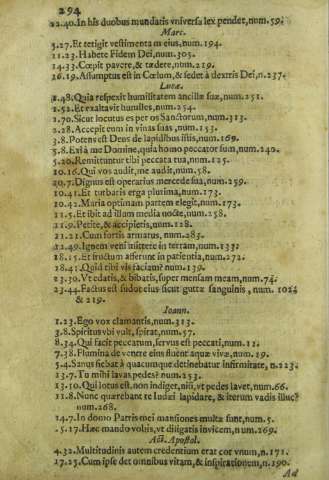 294
22.40. In his duobus mundatis vniversa lex pendet, num. 59.
Marc.
5.27. Et tetigit vestimenta eius, num. 194.
11.23. Habete Fidem Dei, num. 305.
14.33. Cœpit pavere, & tædere, num. 219.
16.19. Assumptus est in Cœlum, & sedet à dextris Dei, n. 237.
Lucæ.
1.48. Quia respexit humilitatem ancillæ suæ, num. 251.
1.52. Et exaltavit humiles, num. 254.
1.70. Sicut locutus es per os Sanctorum, num. 313.
2.28. Accepit eum in vlnas suas, num. 153.
3.8. Potens est Deus de lapidibus istis, num. 169.
5.8. Exi à me Domine, quia homo peccator sum, num. 240.
5.20. Remittuntur tibi peccata tua, num. 125.
10.16. Qui vos audit, me audit, num. 58.
10.7. Dignus est operarius mercede sua, num. 259.
10.41. Et turbaris erga plurima, num. 173.
10.42. Maria optimam partem elegit, num. 173.
11.5. Et ibit ad illum media nocte, num. 258.
11.9. Petite, & accipietis, num. 128.
11.21. Cum fortis armatus, num. 285.
12.49. Ignem veni mittere in terram, num. 133.
18.15. Et fructum afferunt in patientia, num. 272.
18.41. Quid tibi vis faciam? num. 139.
22.30. Vt edatis, & bibatis, super mensam meam, num. 74.
23.44. Factus est sudor eius sicut guttæ sanguinis, num. 102.
& 219.
Ioann.
1.23. Ego vox clamantis, num. 313.
3.8. Spiritus vbi vult, spirat, num. 57.
8.34. Qui facit peccatum, servus est peccati, num. 12.
7.38. Flumina de ventre eius fluent aquæ vivæ, num. 19.
5.4. Sanus fiebat à quacumque detinebatur infirmitate, n. 223.
13.7. Tu mihi lavas pedes? num. 253.
13.10. Qui lotus est, non indiget, nisi, vt pedes lavet, num. 66.
11.8. Nunc quærebant te Iudæi lapidare, & iterum vadis illuc?
num. 268.
14.7. In domo Patris mei mansiones multæ sunt, num. 5.
15.17. Hæc mando vobis, vt diligatis invicem, num. 269.
Act. Apostol.
4.32. Multitudinis autem credentium erat cor vnum, n. 171.
17.25. Cum ipse det omnibus vitam, & inspirationem, n. 190.
Ad